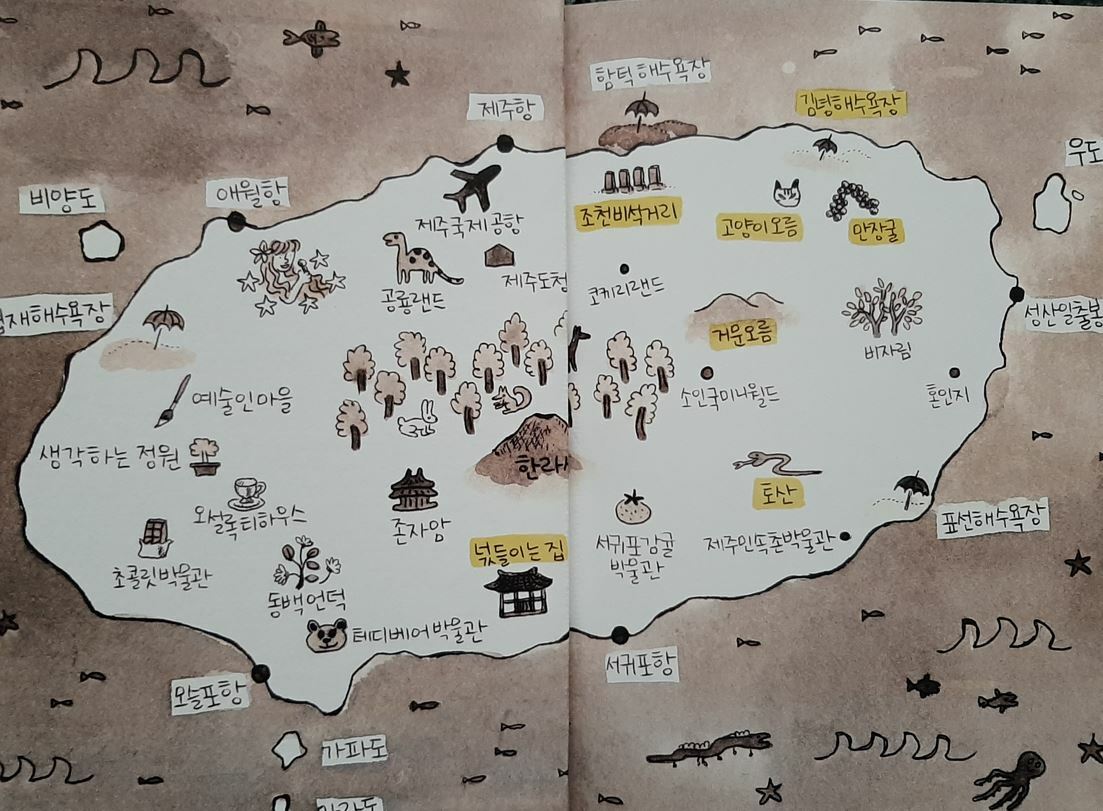 함덕해수욕장
제주항
김녕해수욕장
우도
비양도
애월항
제주국제공항
조천비석거리
고양이오름
만장굴
공룡랜드
제주도청
코끼리랜드
성산일출봉
협재해수욕장
거문오름
비자림
예술인마을
소인국미니월드
혼인지
생각하는 정원
한라산
토산
오설록티하우스
존자암
표선해수욕장
넋들이는 집
서귀포감귤
박물관
제주민속촌박물관
초콜릿박물관
동백언덕
테디베어박물관
서귀포항
오슬포항
가파도